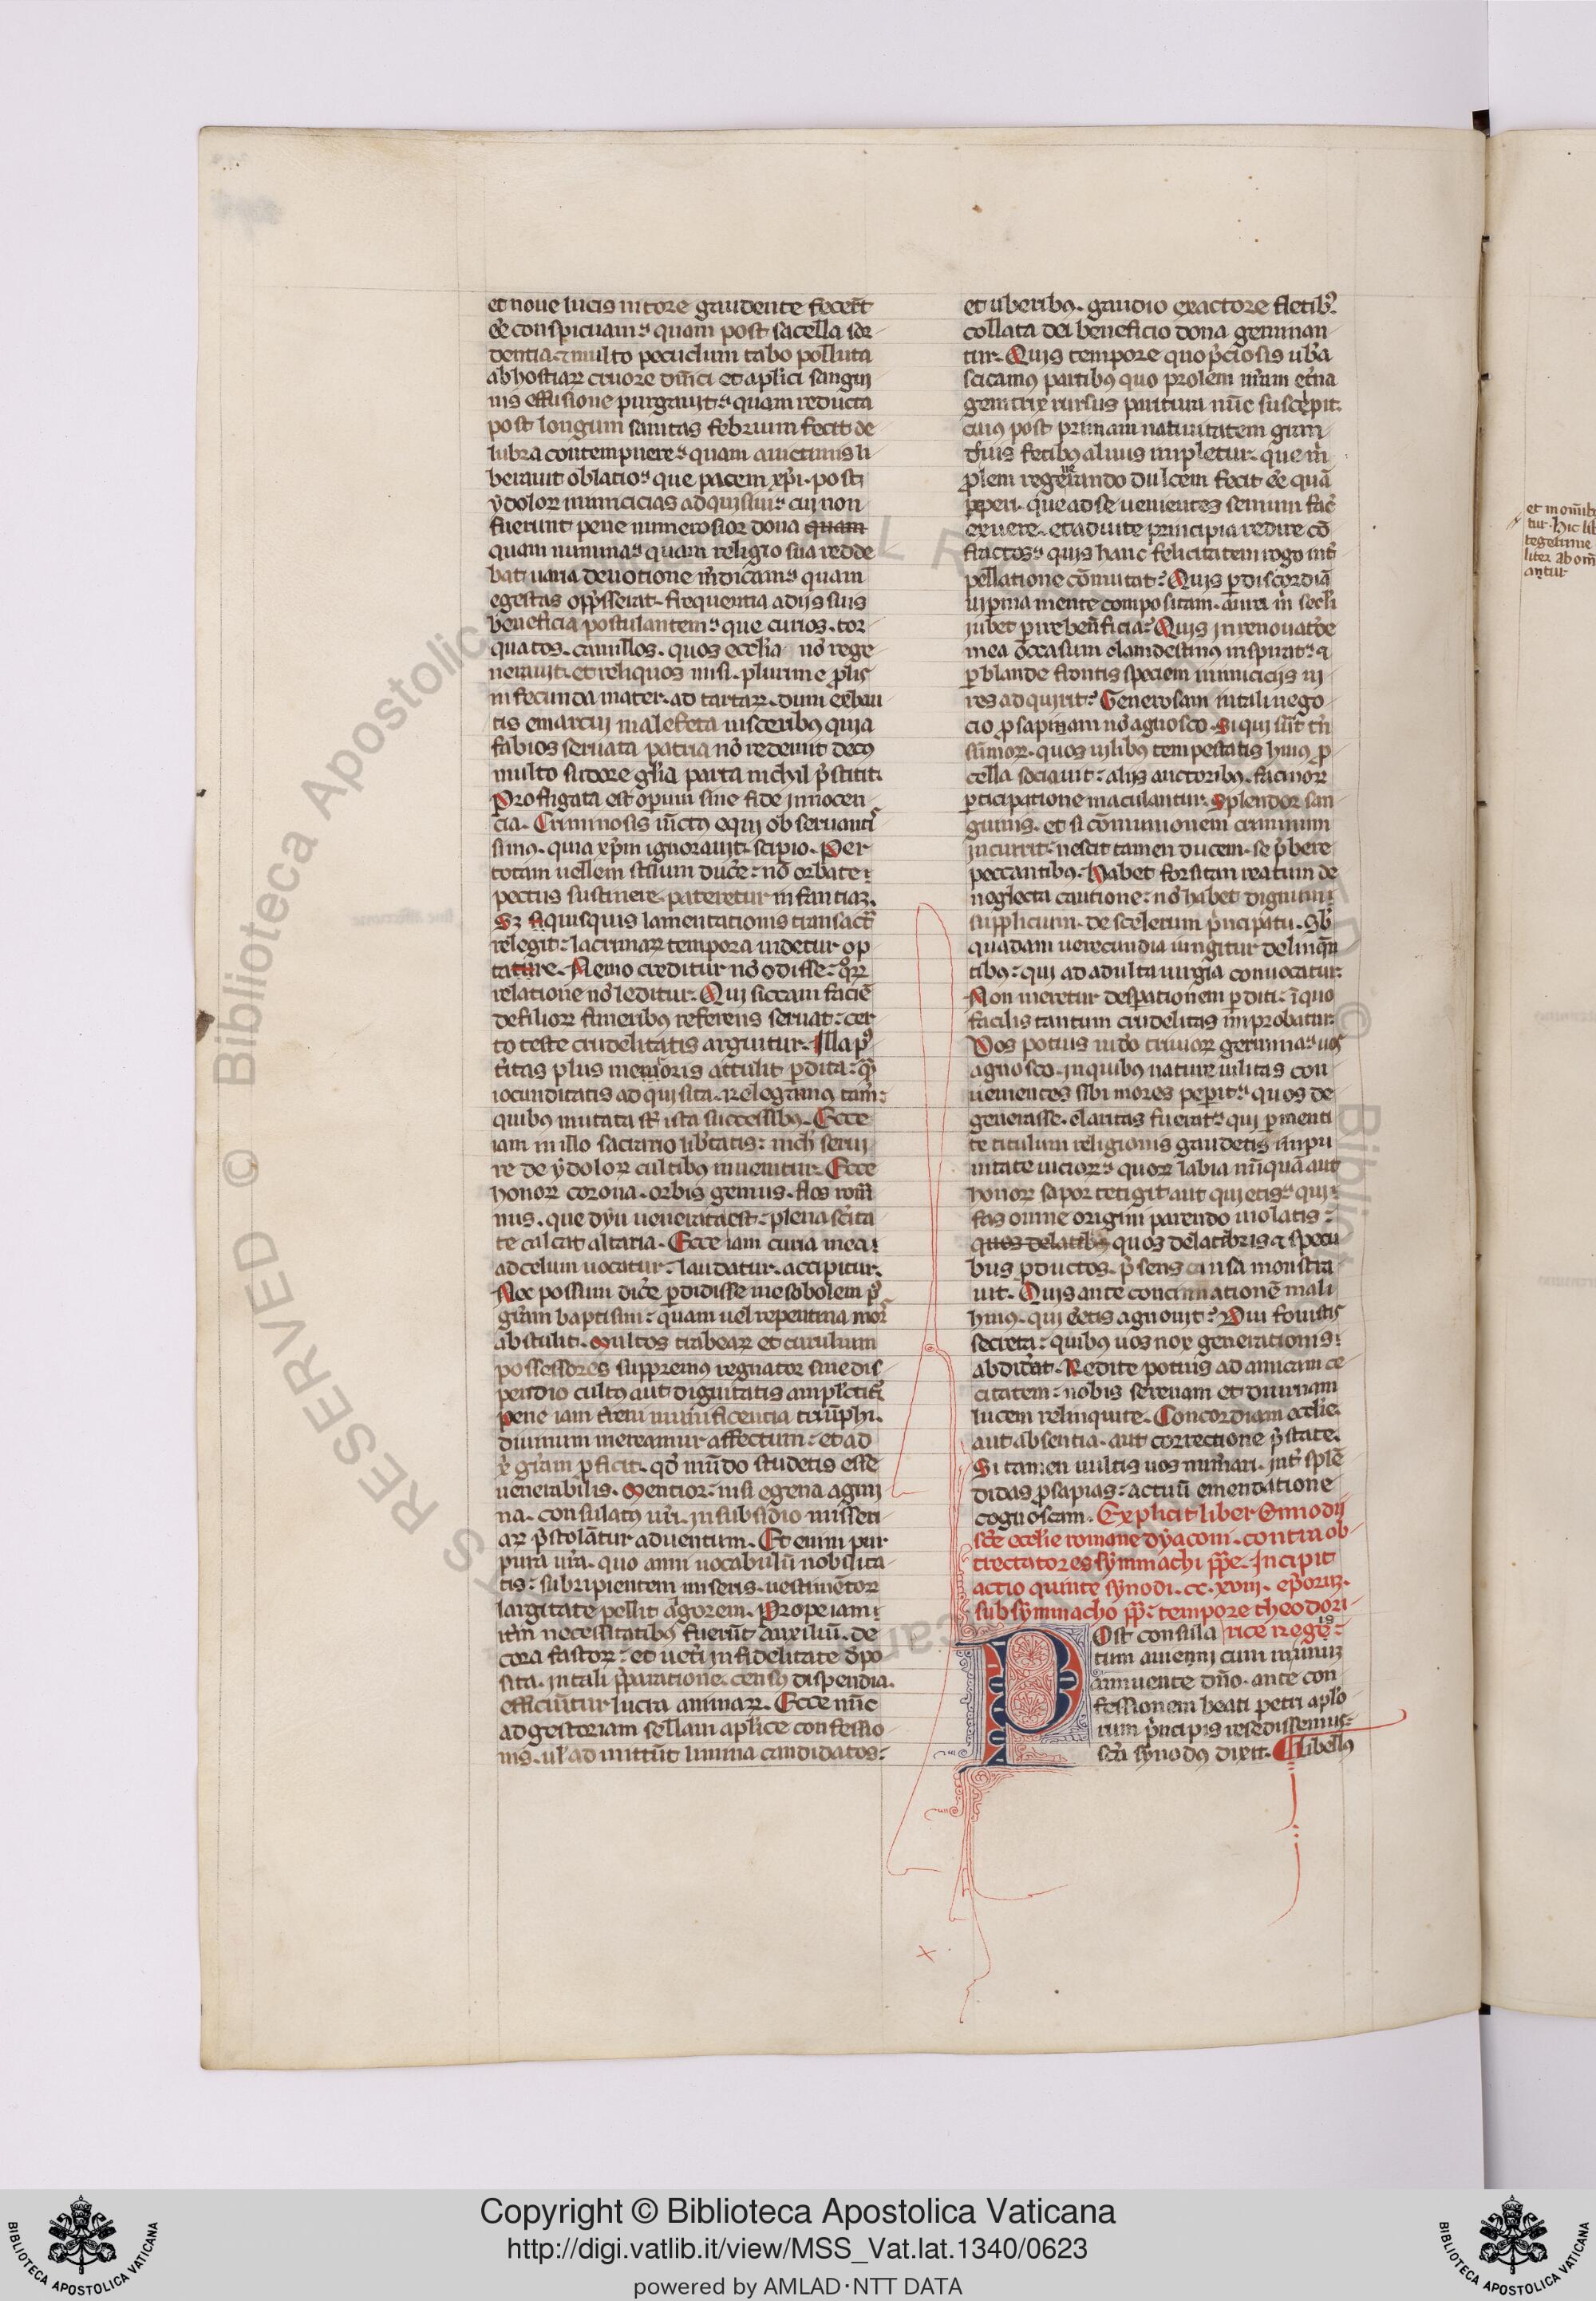 et noue lucis nitore gaudente fecer̄t
ee͛ conspicuam᷒ quam post sacella sor
dentia ⁊ multo pecudum tabo polluta
ab hostiaꝝ cruore dn̄ici et apl̓ici sangui
nis effusione purgauit᷒ quam reducta
post longum sanitas febrium fecit de
lubra contempnere᷒ quam a uictimis li
berauit oblatio᷒ que pacem xp̄i. post
ydoloꝝ inimicicias adquisiuit᷒ cui non
fuerunt pene numerosior dona quam
quam numina᷒ quam religio sua redde
bat uaria deuotione mēdicam᷒ quam
egestas opp̄sserat. frequentia adijs suis
beneficia postulantem᷒ que curios. tor
quatos. camillos. quos eccl̓ia nō rege
nerauit. et reliquos misi. plurime ꝓlis
infecunda mater. ad tartaꝝ. dum exhau
tis emarcui male feta uisceribꝰ quia
fabios seruata patria nō redemit decijs
multo sudore gl̓ia parta nichil p̄stitit.
Profligata est operum sine fide innocen
cia. Criminosis iūctꝰ equi obseruanti
simꝰ. quia xp̄m ignorauit. scipio. Per
totam uellem st̄ilium ducē: nō orbate
pectus sustinere. pateretur infantiaꝫ.
Sꝫ si quisquis lamentationis transacte
relegit: lacrimaꝝ tempora uidetur op
tature. Nemo creditur nō odisse: quoꝝ
relatione nō leditur. Qui siccam faciē
de filioꝝ funeribꝰ referens seruat: cer
to teste crudelitatis arguitur. Illa pꝰ
teritas plus memoris attulit ꝑdita: qͣ
iocunditatis adquisita. Relegamꝰ tam̄:
quibꝰ mutata st̄ ista successibꝰ. Ecce
iam in illo sacrario lib̓tatis: nich̓ serui
re de ydoloꝝ cultibꝰ inuenitur. Ecce
honoꝝ corona. orbis genius. flos romā
nus. que dyu uenerata est: plena scīta
te calcat altaria. Ecce iam curia mea
ad celum uocatur: laudatur. accipitur.
Nec possum dic̄e ꝑdidisse me sobolem ꝑ
gr̄am baptismi: quam uel repentina mors
abstulit. Multos trabeaꝝ et curulium
possessores suppremꝰ regnator sine dis
pendio cultꝰ aut dignitatis amplectit᷒
pene iam terreni munificentia triūphi.
diuinum mereamur affectum: et ad
xp̄i gr̄am ꝓficit. qd̓ mūdo studetis esse
uenerabilis. Mentior: nisi egena agmi
na. consulatꝰ ur̄i. in subsidio miseri
aꝝ p̄stolātur aduentum. Et enim pur
pura ur̄a. quo anni uocabulū nobilita
tis: subripientem miseris. uestimētoꝝ
largitate pellit algorem. Prope iam:
it̄m necessitatibꝰ fuerūt auxiliū. de
cora fastoꝝ: et ueteri in fidelitate dep̄o
sita. in tali p̄paratione. censꝰ dispendia.
efficiūtur lucra animaꝝ. Ecce nūc
ad gestoriam sellam apl̓ice confessio
nis. ul̓ ad mittūt limina candidatos:
et uberibꝰ. gaudio exactore fletibꝰ.
collata dei beneficio dona geminan
tur. Quis tempore quo p̄ciosis ub̓a
scicamus partibꝰ quo prolem ur̄am et̓na
genitrix rursus paritura nūc suscepit.
cuius post primam natiuitatem gran
diuis fetibꝰ aluus impletur. que m̄
ꝓlem regenerando dulcem fecit ee͛ quā
peperi. que ad se uenientes senium fac̄
exuere. et ad uite principia redire cō
fractos᷒ quis hanc felicitatem rogo int̄
pellatione cōmutat᷒ Quis ꝑ discordiā
uiperina mente compositam. aurei in sec̄li
iubet perire beneficia᷒ Quis in renouatōe
mea occasum clandestinus inspirat᷒ ⁊
ꝑ blande frontis speciem inimicicijs ui
res adquirit᷒ Generosam in tali nego
cio ꝓsapiam nō agnosco. Si qui sūt tn̄
sūmoꝝ. quos uilibꝰ tempestatis huiꝰ ꝓ
cella sociauit: alijs auctoribꝰ. facinoꝝ
ꝑticipatione maculantur. Splendor san
guinis. et si cōmunionem criminum
incurrit: nescit tamen ducem. se p̄bere
peccantibꝰ. Habet forsitan reatum de
neglecta cautione: nō habet dignum
supplicium. de scelerum p̄ncipatu. Sb̓
quadam uerecundia ungitur delinquē
tibꝰ: qui ad adulta iurgia conuocatur:
Non meretur desperationem ꝑditi: ī quo
facilis tantum crudelitas improbatur.
Vos potius iudo triuioꝝ germina᷒ uos
agnosco. in quibꝰ nature uilitas con
uenientes sibi mores peperit᷒ quos de
generasse. claritas fuerat᷒ qui ꝑ menti
te titulum religionis gaudetis impu
nitate uicioꝝ᷒ quoꝝ labia nūquā aut
honoꝝ sapor tetigit aut quietis᷒ qui
fas omne origini parendo uiolatis:
quos delatibꝰ quos de latibris ⁊ specu
bus ꝑductos. p̄sens causa monstra
uit. Quis ante concinnationē mali
huiꝰ. qui ee͛tis agnouit᷒ Qui fouistis
secreta: quibꝰ uos nox generationis.
abdic̄at. Redite potius ad amicam ce
citatem: nobis serenam et diurnam
lucem relinquite. Concordiam eccl̓ie.
aut absentia. aut correctione p̄state.
Si tamen uultis uos num̄ari. int̄ splē
didas ꝓsapias: actuū emendatione
cognoscam. Explicit liber Ennodij
sc̄e eccl̓ie romane dyaconi. contra ob
trectatores symmachi pp̄e. Incipit
actio quinte synodi. cc. xviii. ep̄oruꝫ.
sub symmacho pp̄. tempore theodori
Ost consula rice regis:
tum auienni cum nimiuꝫ
annuente dn̄o. ante con
fessionem beati petri apl̓o
rum p̄ncipis resedissemus:
sc̄a synodꝰ dixit. Libellꝰ
et in om̄ib
tur. hic lib
tegetime
liter ab om̄
antur
Copyright © Biblioteca Apostolica Vaticana
http://digi.vatlib.it/view/MSS_Vat.lat.1340/0623
powered by AMLAD·NTT DATA
BIBLIOTECA APOSTOLICA VATICANA
BIBLIOTECA APOSTOLICA VATICANA